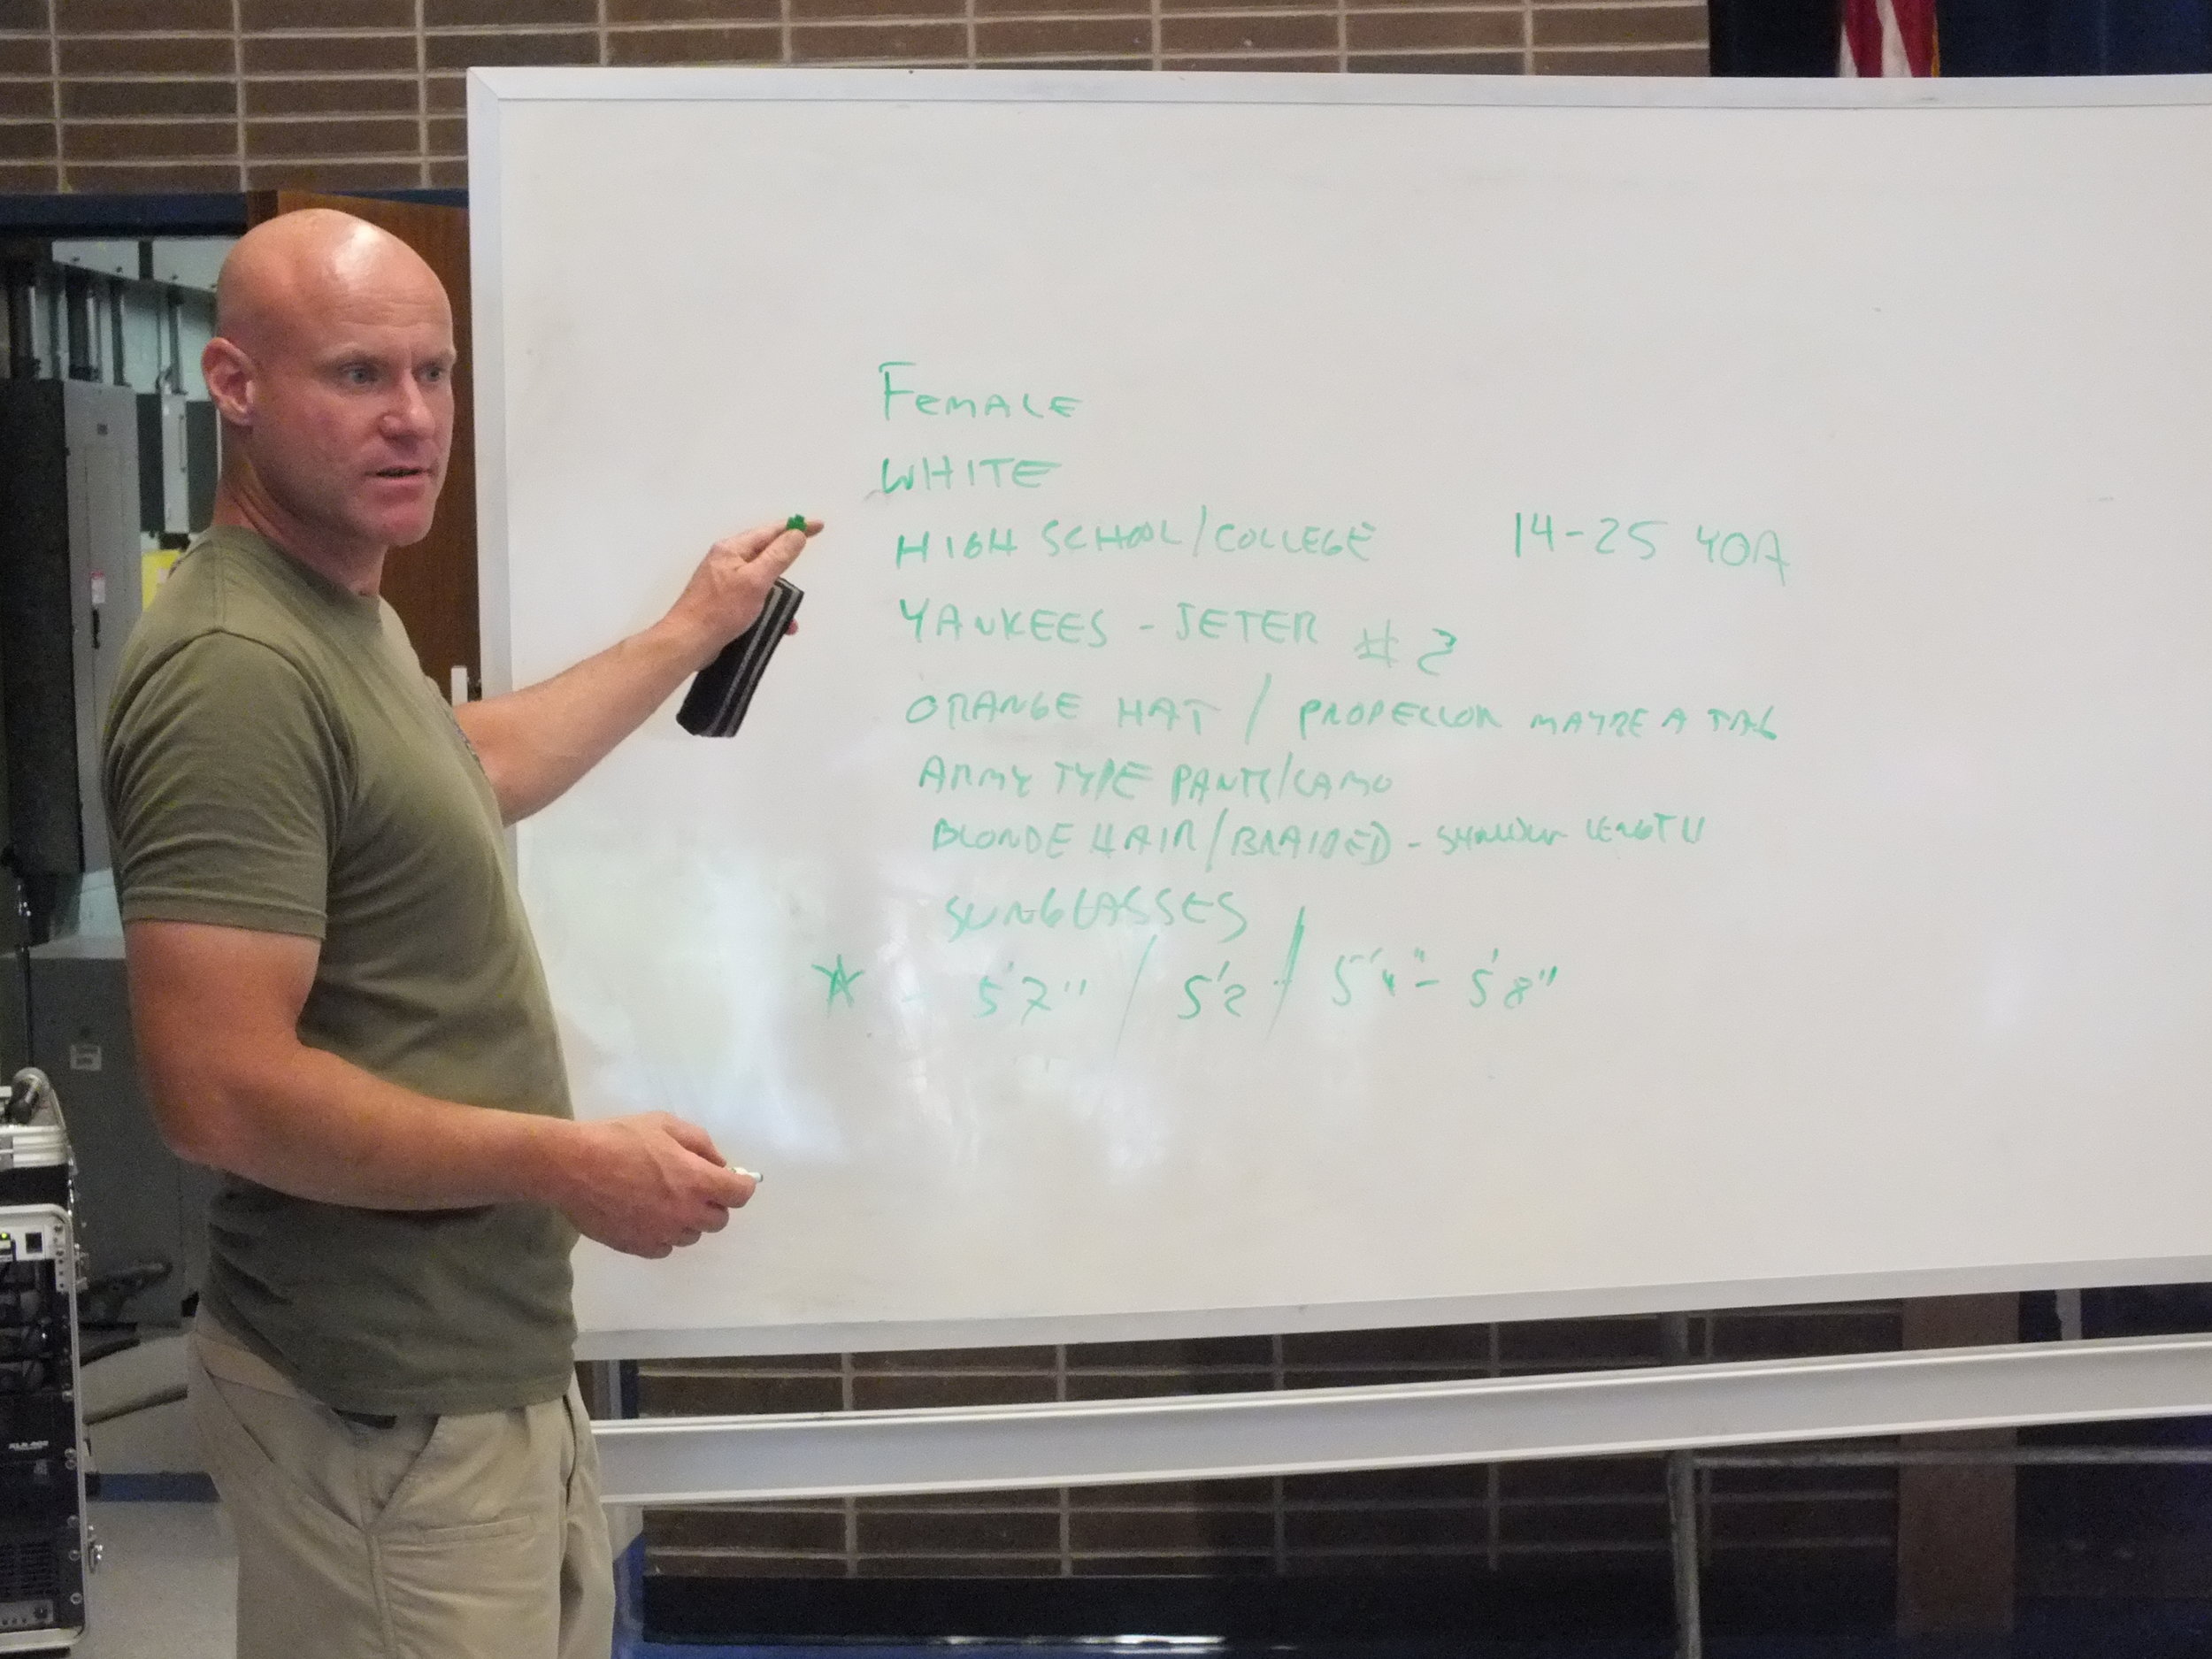 FEMALE
WHITE
HIGH SCHOOL/COLLEGE 14-25 YOA
YANKEES - JETER #2
ORANGE HAT / PROPELLOR MAYBE A TAG
ARMY TYPE PANTS/CAMO
BLONDE HAIR/BRAIDED - SHOULDER LENGTH
SUNGLASSES
5'7" / 5'2 / 5'4" - 5'8"